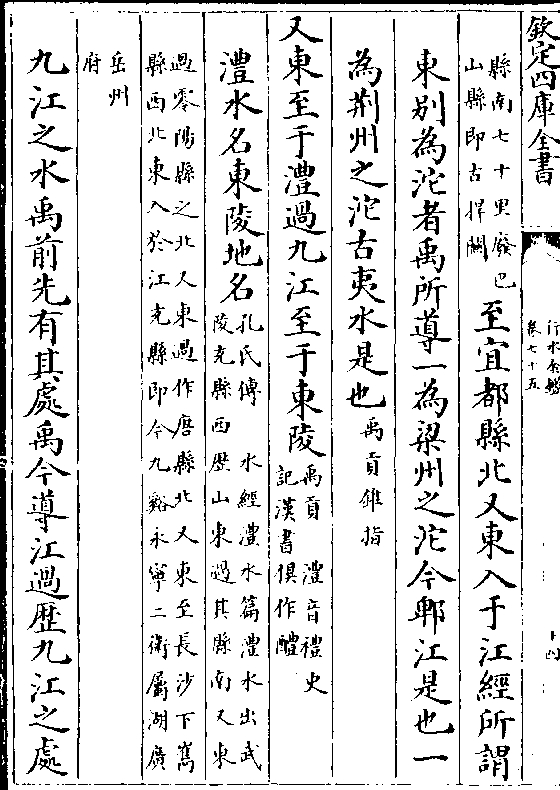 欽定四庫全書
行水金鑑
卷七十五
縣南七十里廢巴
山縣即古捍關
至宜都縣北又東入于江經所謂
東别為沱者禹所導一為梁州之沱今郫江是也一
為荆州之沱古夷水是也
禹貢錐指
又東至于澧過九江至于東陵
禹貢 澧音禮史
記漢書俱作醴
澧水名東陵地名
孔氏傳 水經澧水篇澧水出武
陵充縣西歷山東過其縣南又東
過零陽縣之北又東過作唐縣北又東至長沙下雋
縣西北東入於江充縣即今九谿永寧二衛屬湖廣
岳州
府
九江之水禹前先有其處禹今導江過歷九江之處